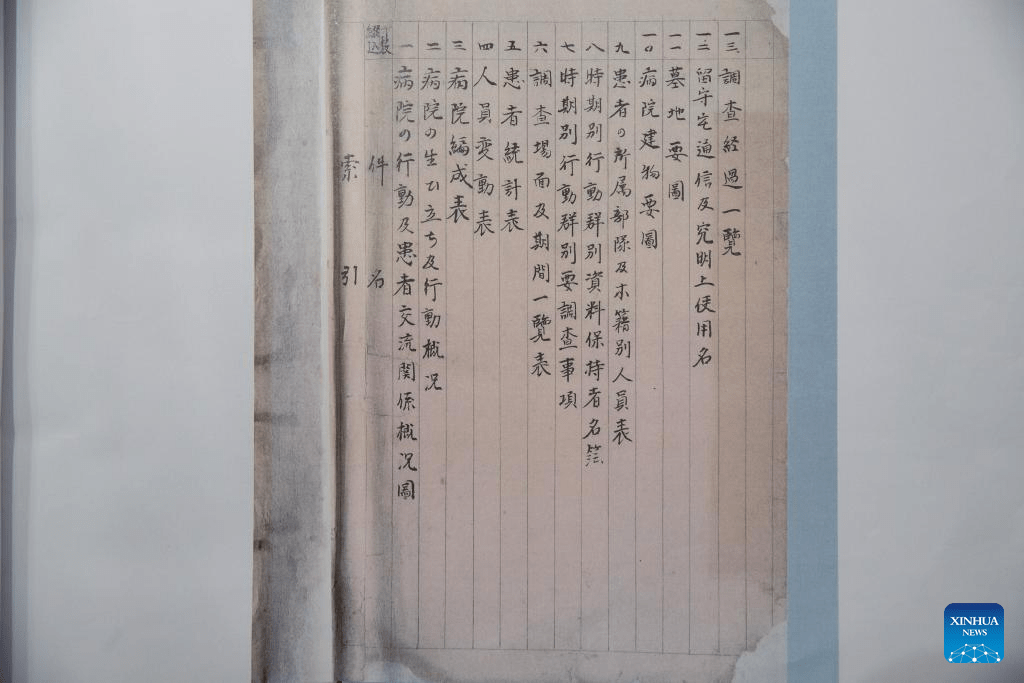 索引
件名
一 病院の行動及患者交流関係概況圖
二 病院の生ひ立ち及行動概況
三 病院編成表
四 人員変動表
五 患者統計表
六 調査場面及期間一覽表
七 時期別行動群別要調査事項
八 時期別行動群別資料保持者名簿
九 患者の所属部隊及本籍別人員表
一〇 病院建物要圖
一一 墓地要圖
一二 留守宅通信及究明上使用名
一三 調査経過一覽
XINHUA
NEWS